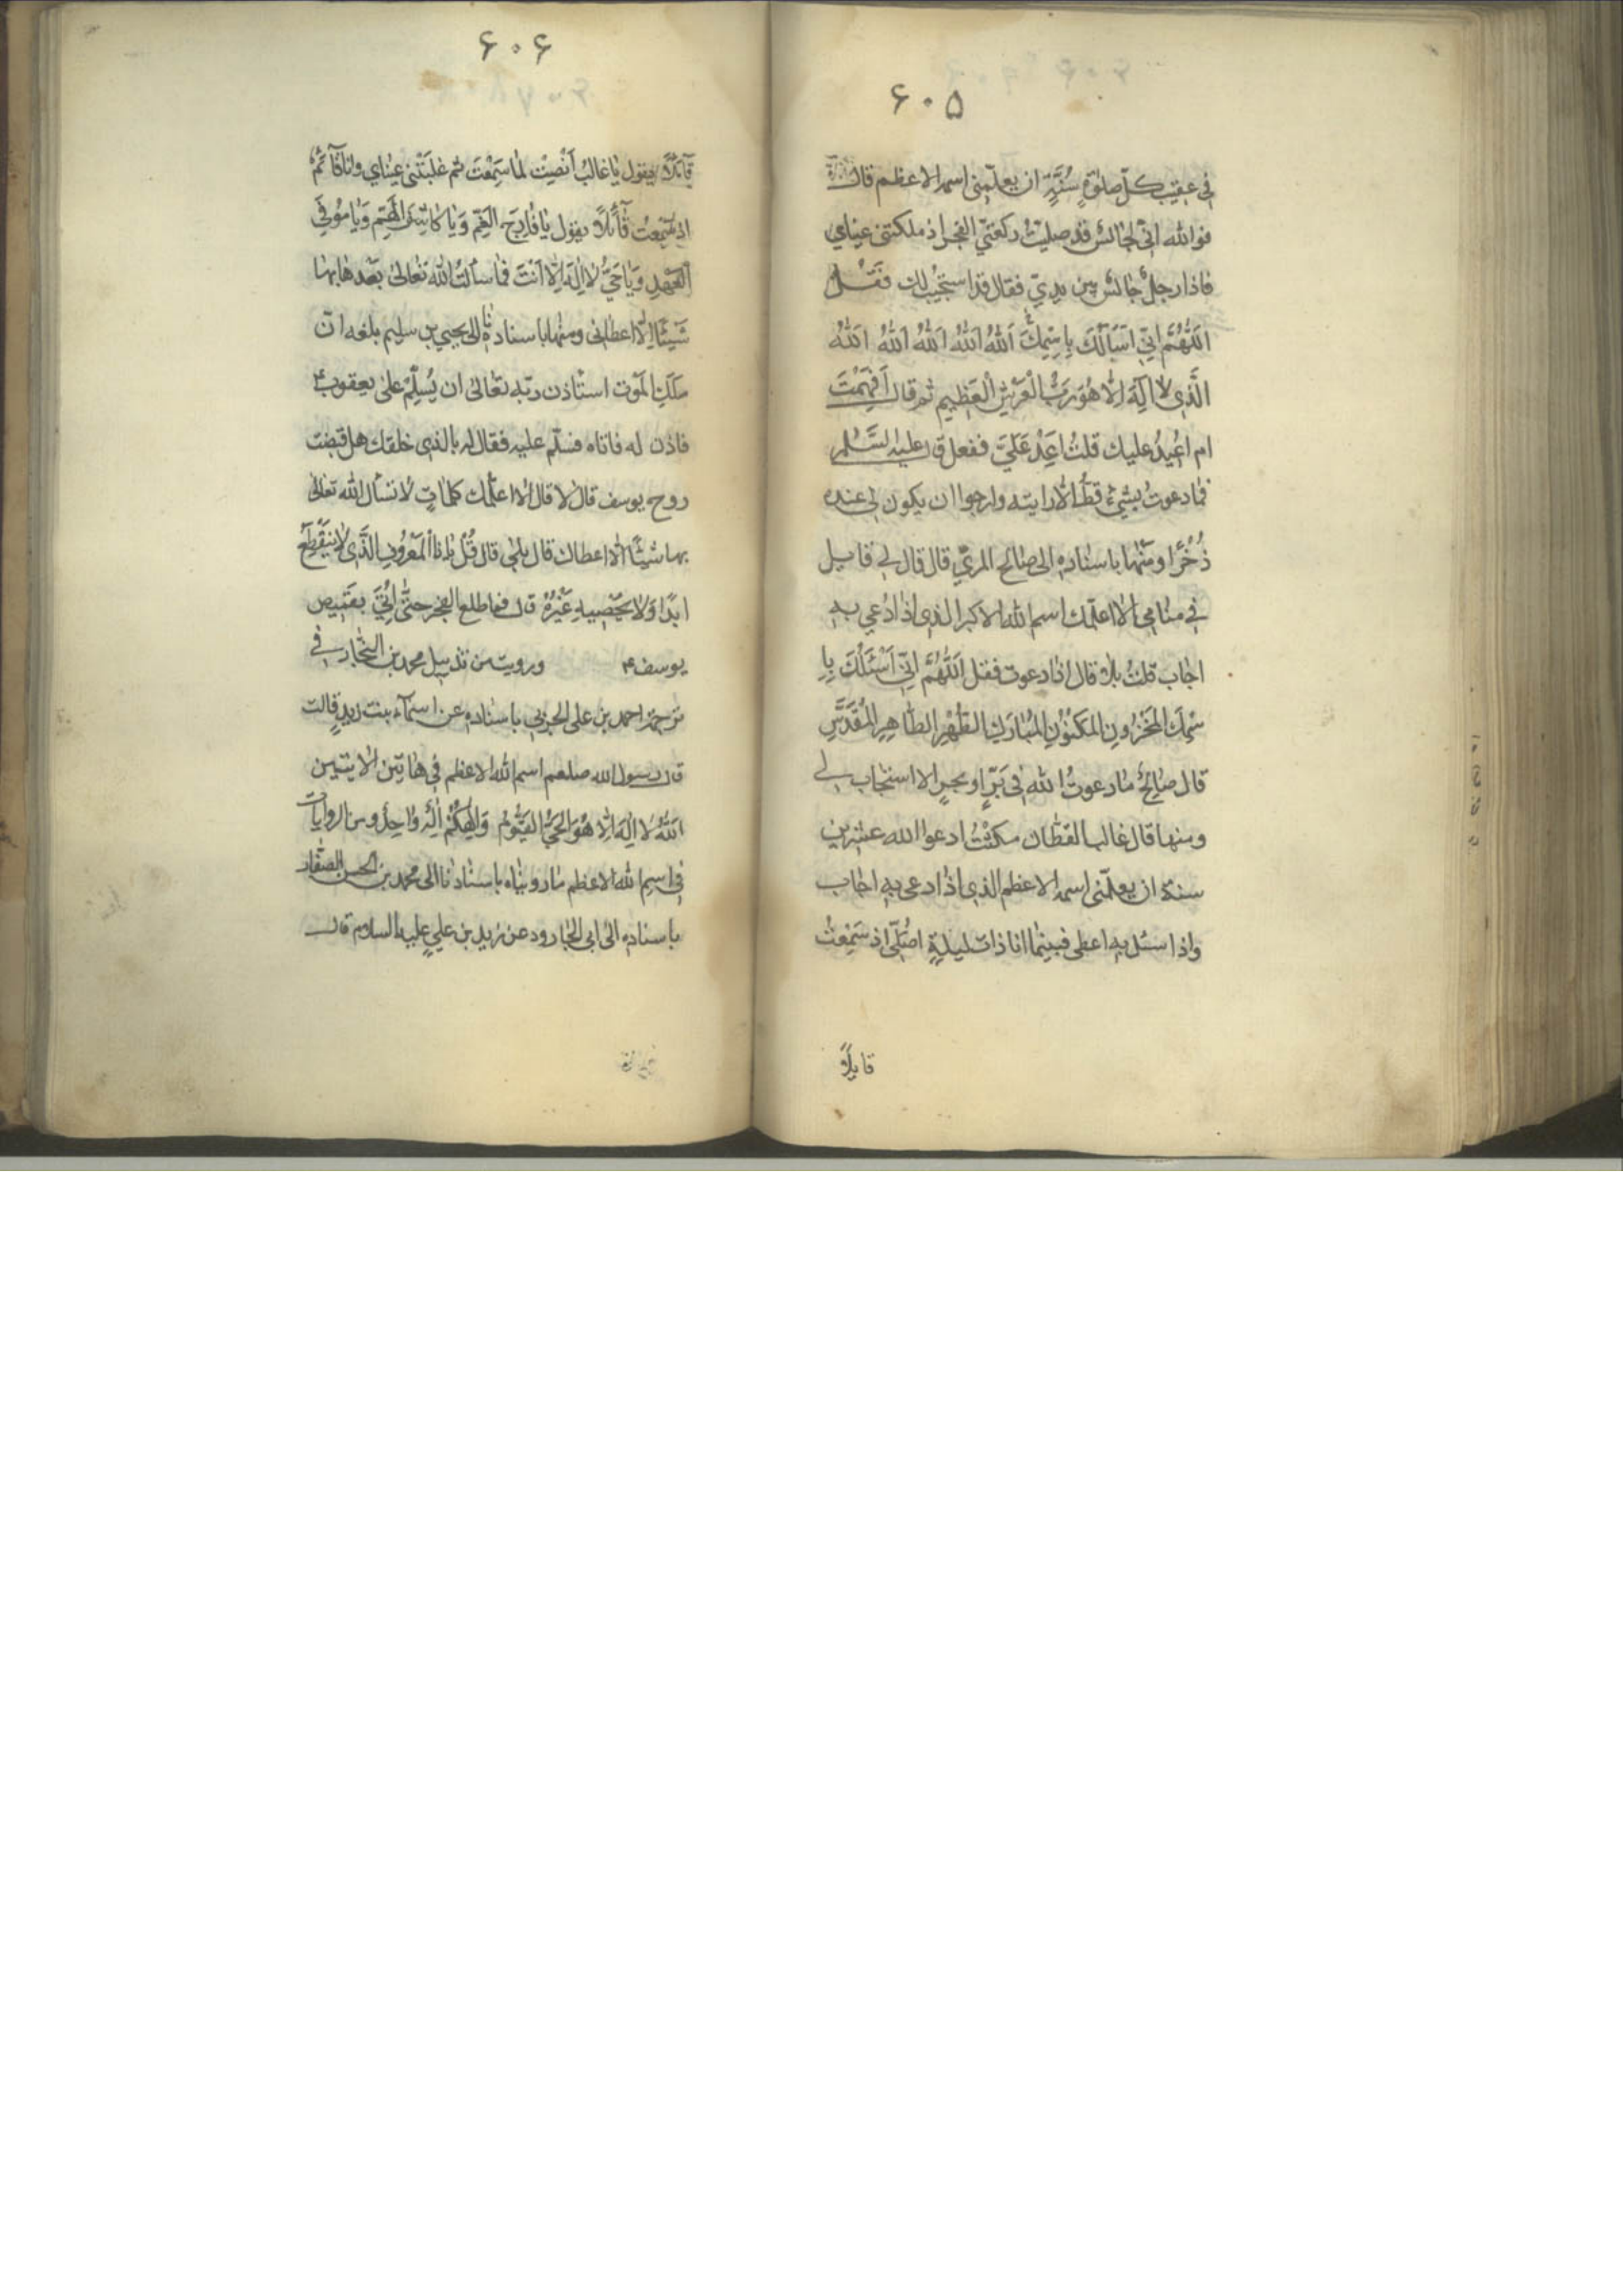 ۶۰۵
في عقيب كلّ صلوةٍ سُنّةٍ ان يعلّمنى اسمه الاعظم قال
فوالله انّي لجالسٌ قد صليتُ ركعتي الفجر اذ ملكتنى عيناي
فاذا رجلٌ جالسٌ بين يديّ فقال قد استجيب لك فَقُل
اَللّٰهُمَّ اِنّي اَسْأَلُكَ بِاسْمِكَ اَللّٰهُ اَللّٰهُ اَللّٰهُ اَللّٰهُ اَللّٰهُ
الَّذي لا اِلٰهَ اِلّا هُوَ رَبُّ الْعَرْشِ الْعَظيمِ ثم قال اَفَهِمْتَ
ام اُعيدُ عليك قلتُ اَعِدْ عَلَيَّ ففعل ق‍ل عليه السَّلم
فما دعوتُ بشيءٍ قطّ الّا رايته وارجوا ان يكون لى عنده
ذُخْرًا ومنها باسناده الى صالح المريّ قال قال لي قايل
في منامي الا اعلّمك اسم الله الاكبر الذي اذا دُعي به
اجاب قلتُ بلٰى قال اذا دعوت فقل اَللّٰهُمَّ اِنّي اَسْئَلُكَ بِا
سْمِكَ المَخْزُونِ المَكْنُونِ المُبارَكِ الطُّهْرِ الطّاهِرِ المُقَدَّسِ
قال صالحٌ ما دعوتُ الله في بَرٍّ او بحرٍ الا استجاب لي
ومنها قال غالب القطّان مكثتُ ادعوا الله عشرين
سنة ان يعلّمنى اسمه الاعظم الذي اذا دعى به اجاب
واذا سئل به اعطى فبينما انا ذات ليلةٍ اصلّي اذ سَمِعْتُ
قايلًا
۶۰۶
قآئلًا يقول يا غالبُ اَنْصِتْ لما سَمِعْتَ ثم غلبَتْنى عيناي وانا قآئمٌ
اذ سَمِعتُ قآئلًا يقول يا فارِجَ الغَمِّ وَيا كاشِفَ الهَمِّ وَيا مُوفِيَ
العَهْدِ وَيا حَيُّ لا اِلٰهَ اِلّا اَنْتَ فما سألتُ الله تعالى بَعْدها بها
شَيئًا اِلّا اعطانى ومنها باسنادنا الى يحيي بن سليم بلغه انّ
ملك الموت استاذن ربّه تعالى ان يُسلّم على يعقوب ع
فاذن له فاتاه فسلّم عليه فقال له بالذي خلقك هل قبضت
روح يوسف قال لا قال الا اعلّمك كلماتٍ لا تسأل الله تعالى
بها شيئًا الّا اعطاك قال بلى قال قُلْ يا ذا المَعْرُوفِ الَّذي لا يَنْقَطِعُ
ابدًا وَلا يُحْصيهِ غَيْرُهُ ق‍ل فما طلع الفجر حتّى اُتِيَ بقميص
يوسف ع ورويت من تذييل محمد بن النجّار في
ترجمة احمد بن على الحربي باسناده عن اسمآء بنت زيدٍ قالت
قال رسول الله صلعم اسم الله الاعظم في هاتين الايتين
اَللّٰهُ لا اِلٰهَ اِلّا هُوَ الحَيُّ القَيُّومُ وَاِلٰهُكُمْ اِلٰهٌ واحِدٌ ومن الروايات
في اسم الله الاعظم ما رويناه باسنادنا الى محمد بن الحسن الصفّار
باسناده الى ابى الجارود عن زيد بن عليٍ عليه السلام قال